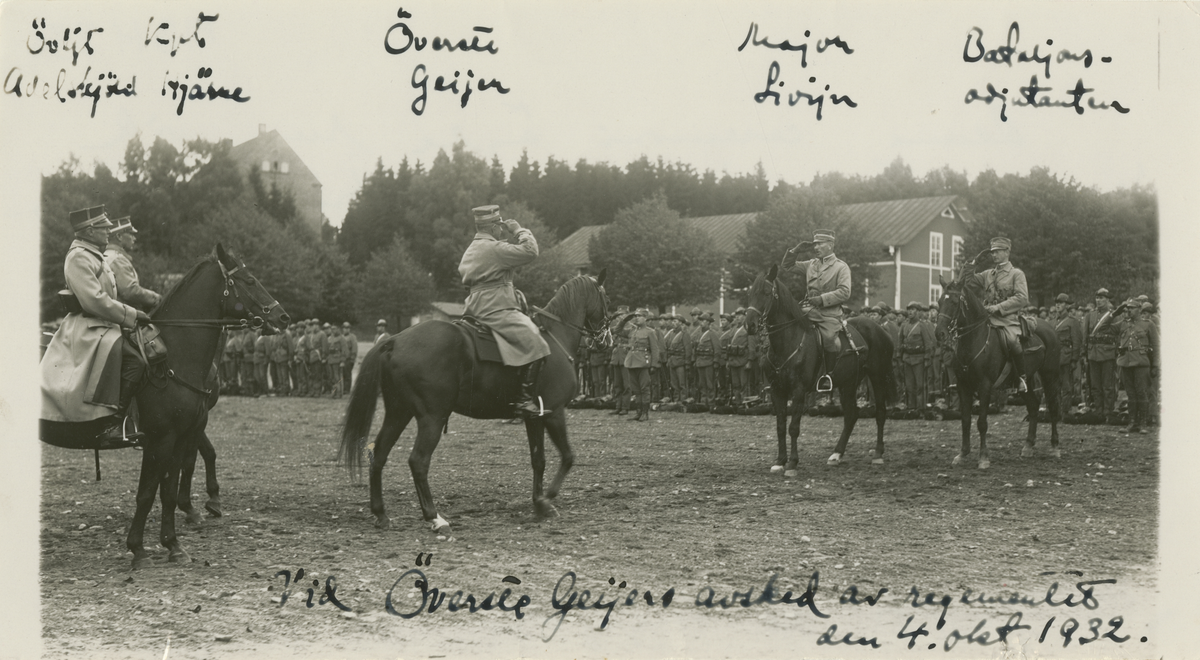 Övljt Kpt
Adelsköld Hjärne
Överste
Geijer
Major
Livijn
Bataljons-
adjutanten
Vid Överste Geijers avsked av regementet
den 4. okt 1932.